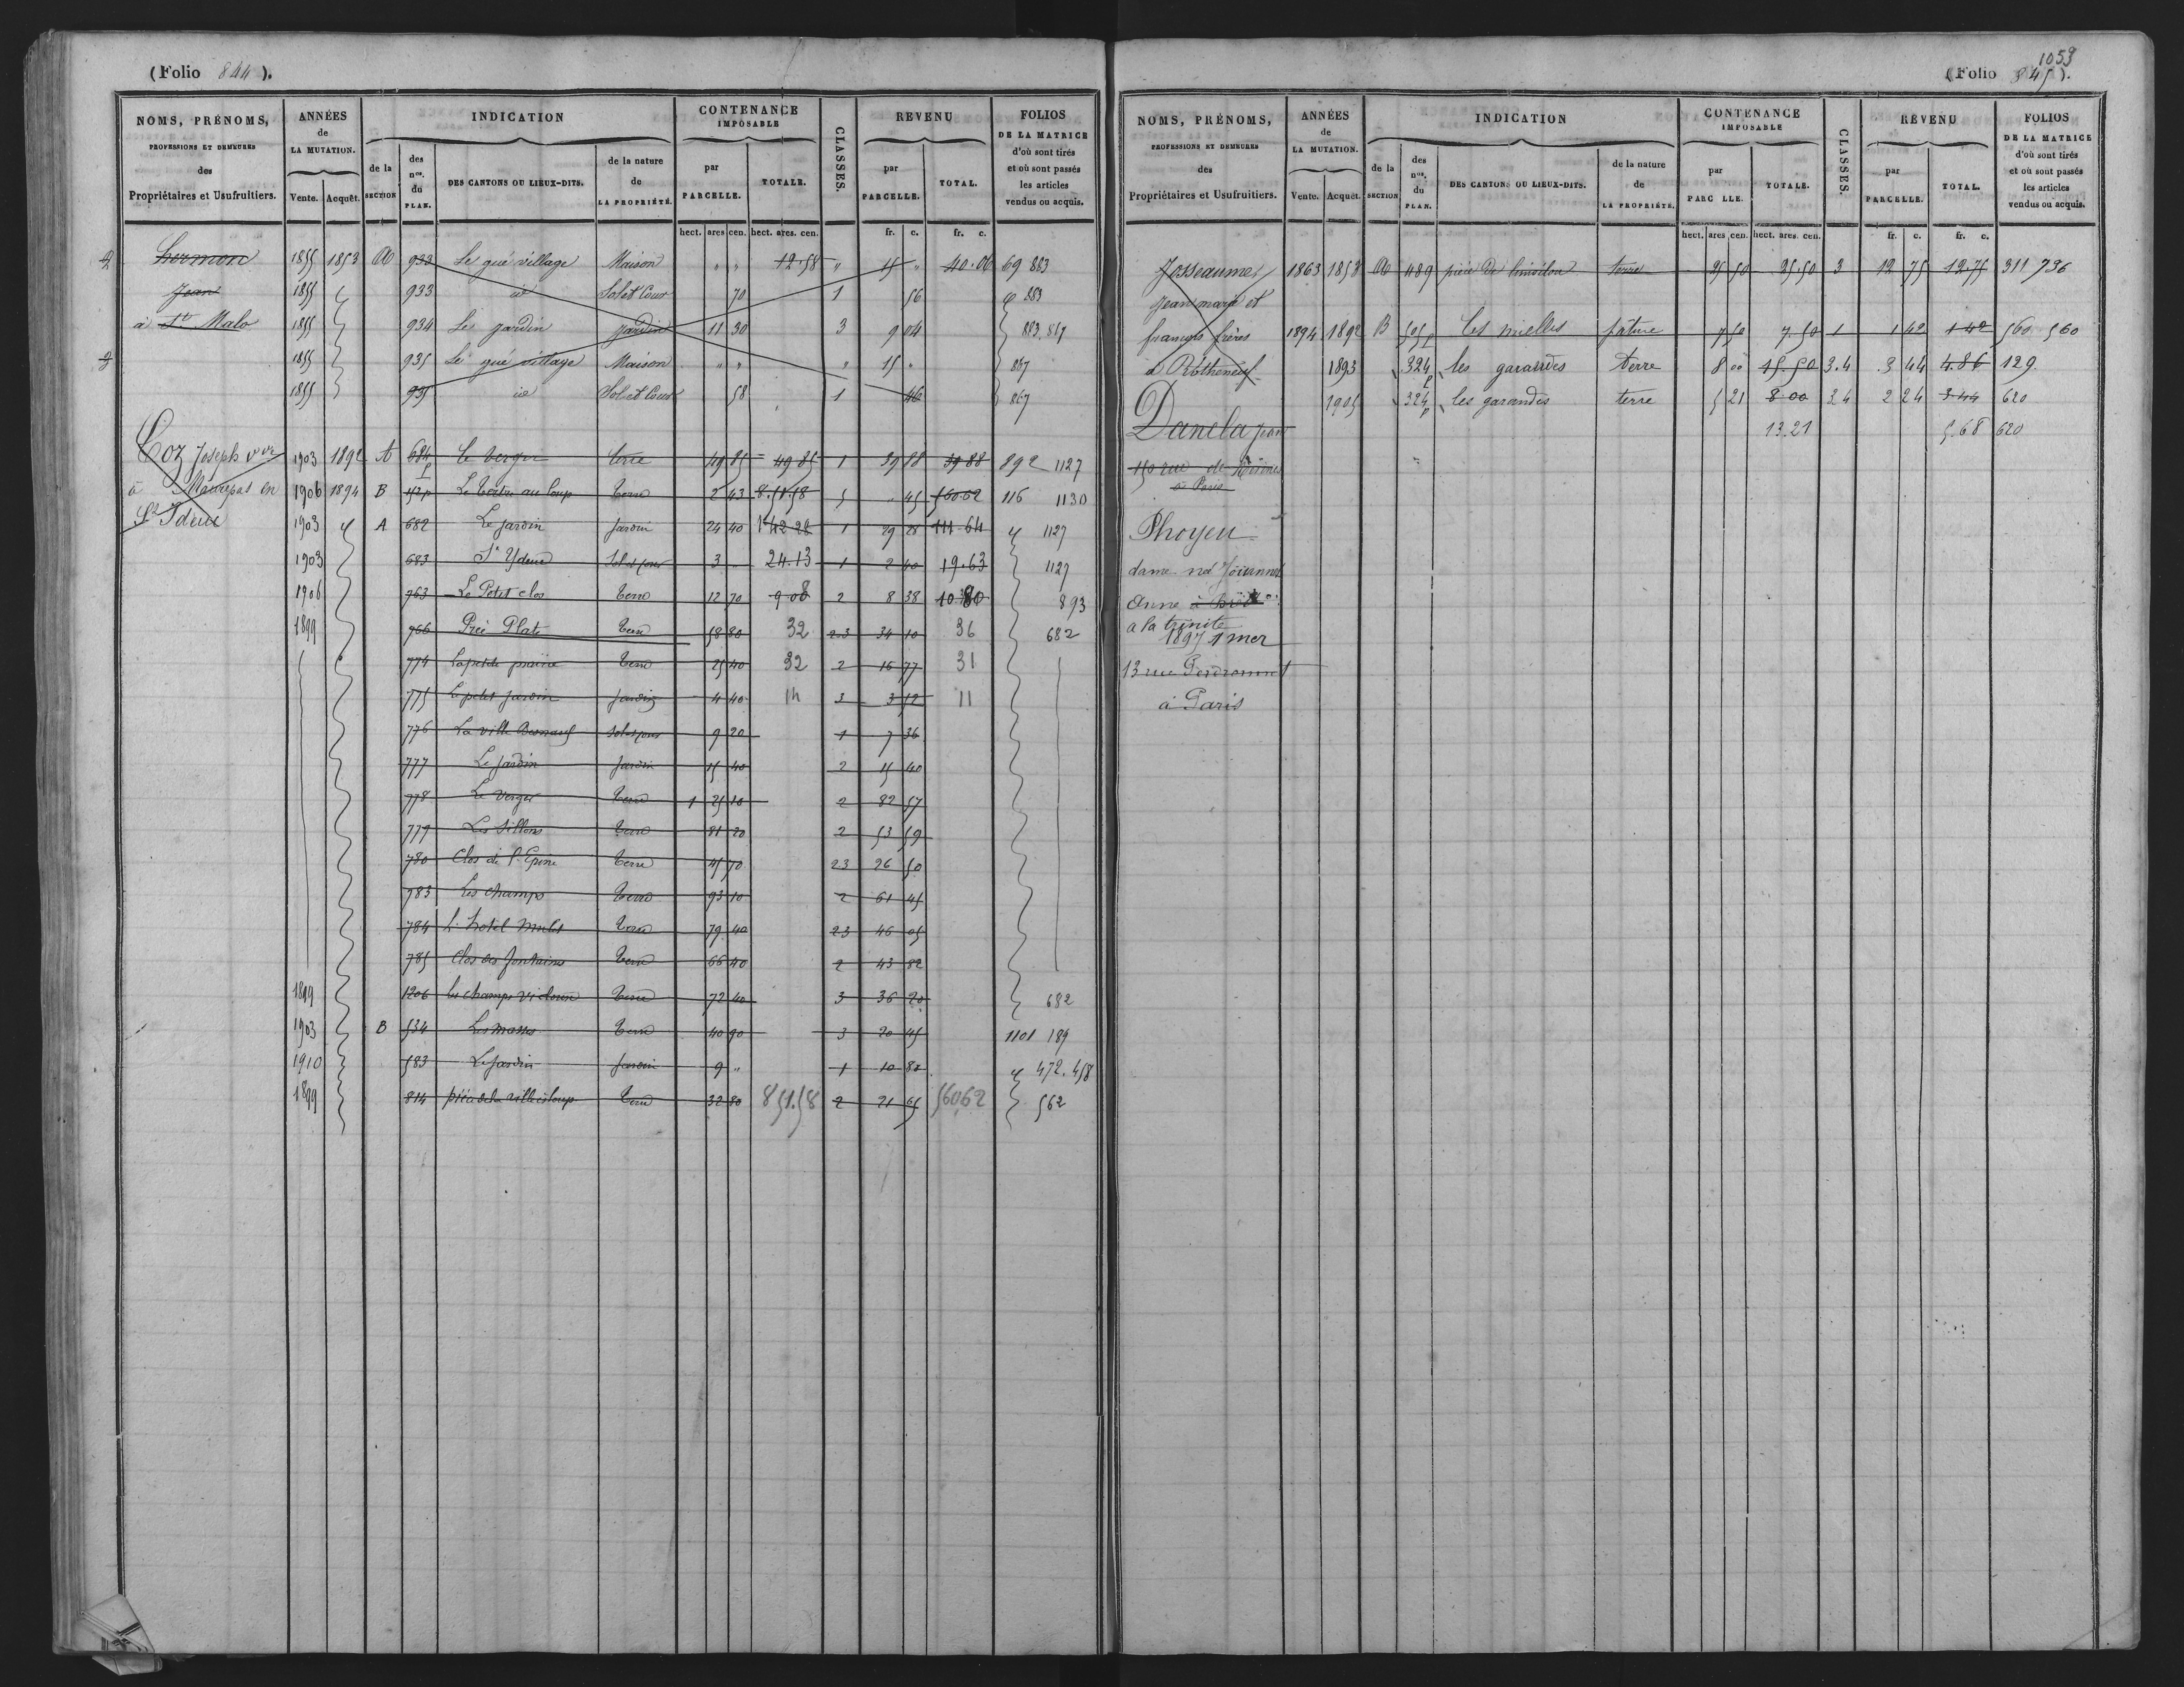 (Folio 844).
NOMS, PRÉNOMS, PROFESSIONS ET DEMEURES des Propriétaires et Usufruitiers.
ANNÉES de LA MUTATION. Vente. Acquêt.
INDICATION de la SECTION des nos. du PLAN. DES CANTONS OU LIEUX-DITS. de la nature de LA PROPRIÉTÉ.
CONTENANCE IMPOSABLE par PARCELLE. TOTALE.
CLASSES.
REVENU par PARCELLE. TOTAL.
FOLIOS DE LA MATRICE d'où sont tirés et où sont passés les articles vendus ou acquis.
hect. ares cen. hect. ares. cen. fr. c. fr. c.
2 1855 1853 933 Le gué village Maison " " 12.58 " 15 " 40.06 69 883
Jean 1855 933 id Sol et Cour 70 1 56 883
à St Malo 1855 934 Le jardin jardin 11 30 3 9 04 883.867
2 1855 935 Le gué village Maison " " " 15 " 867
1855 935 id Sol et Cour 58 1 46 867
Coz Joseph 1903 1892 A 684 p Le verger terre 49 85 49 85 1 39 88 39 88 892 1127
à Maurepas en 1906 1894 B Le tertre au loup terre 2 43 8.51.58 5 " 45 560.62 116 1130
St Ideuc 1903 A 682 Le jardin jardin 24 40 1 29 28 1127
1903 683 St Ydeuc Sol et cour 3 " 24.13 1 2 40 19.63 1127
1906 763 Le Petit clos terre 12 70 9 08 2 8 38 10 80 893
1899 766 Pré Plate terre 58 80 32 2.3 34 10 36 682
774 La petite prairie terre 25 40 32 2 16 77 31
775 Le petit jardin jardin 4 40 14 3 3 52 11
776 La ville Besnard Sol et cour 9 20 1 7 36
777 Le jardin jardin 15 40 2 15 40
778 Le verger terre 1 25 10 2 82 57
779 Les Sillons terre 81 20 2 53 59
780 Clos de l'Epine terre 45 70 23 26 50
783 Les champs terre 93 10 2 61 45
784 L'hotel terre 79 40 23 46 05
785 Clos des fontaines terre 66 40 2 43 82
1899 1206 les champs terre 72 40 3 36 20 682
1903 B 534 Les masses terre 40 90 3 20 45 1101 189
1910 583 Le jardin jardin 9 " 1 10 80 472.458
1899 814 pièce de la ville terre 32 80 851.58 2 21 65 56062 562
1059
(Folio 845).
NOMS, PRÉNOMS, PROFESSIONS ET DEMEURES des Propriétaires et Usufruitiers.
ANNÉES de LA MUTATION. Vente. Acquêt.
INDICATION de la SECTION des nos. du PLAN. DES CANTONS OU LIEUX-DITS. de la nature de LA PROPRIÉTÉ.
CONTENANCE IMPOSABLE par PARC LLE. TOTALE.
CLASSES.
REVENU par PARCELLE. TOTAL.
FOLIOS DE LA MATRICE d'où sont tirés et où sont passés les articles vendus ou acquis.
hect. ares cen. hect. ares. cen. fr. c. fr. c.
Josseaumes 1863 1853 489 pièce de terre 25 50 25.50 3 12 75 12.75 311 736
Jean marie et
françois frères 1894 1892 B 505 p Les mielles pâture 7 50 7.50 1 1 42 1 42 560 560
à Rothéneuf 1893 324 p les garandes terre 8 00 15.50 3.4 3 44 4.86 129
1905 324 p les garandes terre 5 21 8 00 3 4 2 24 3 44 620
Danela 13.21 5.68 620
150 rue de
à Paris
Phoyeu
dame née
Anne
a la trinité
1897 s mer
13 rue
à Paris